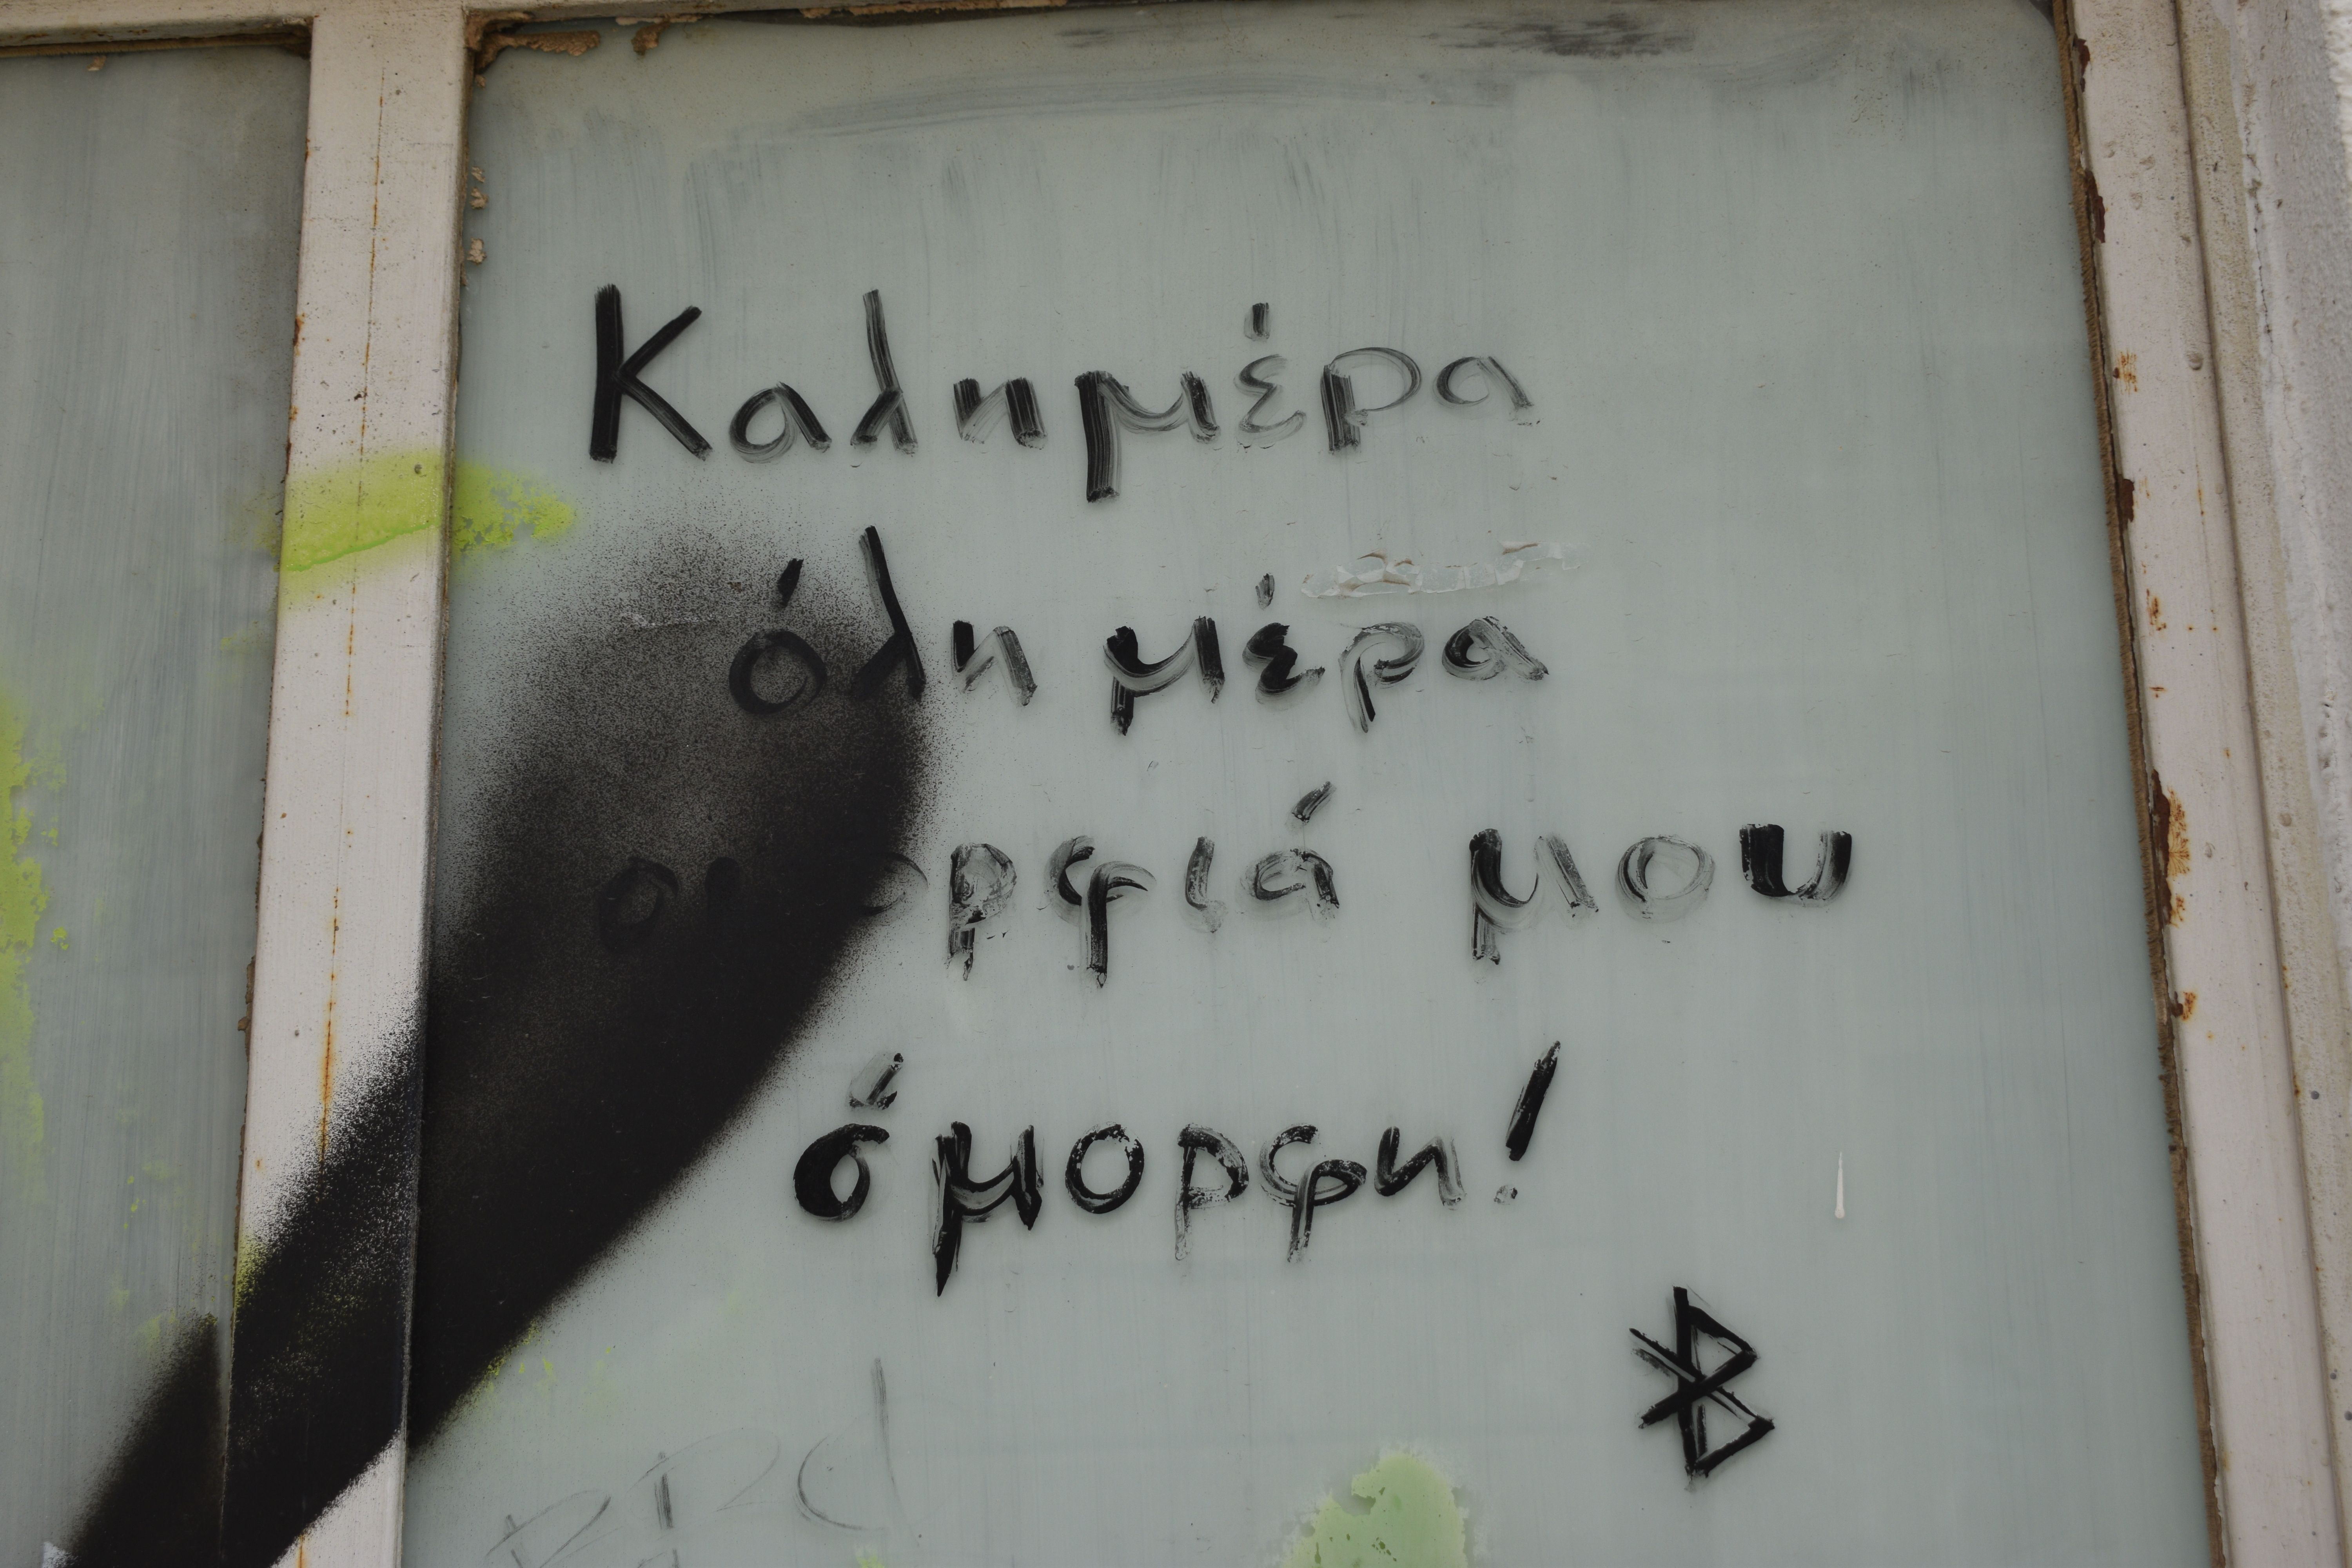 Καλημέρα
όλη μέρα
ομορφιά μου
όμορφη!